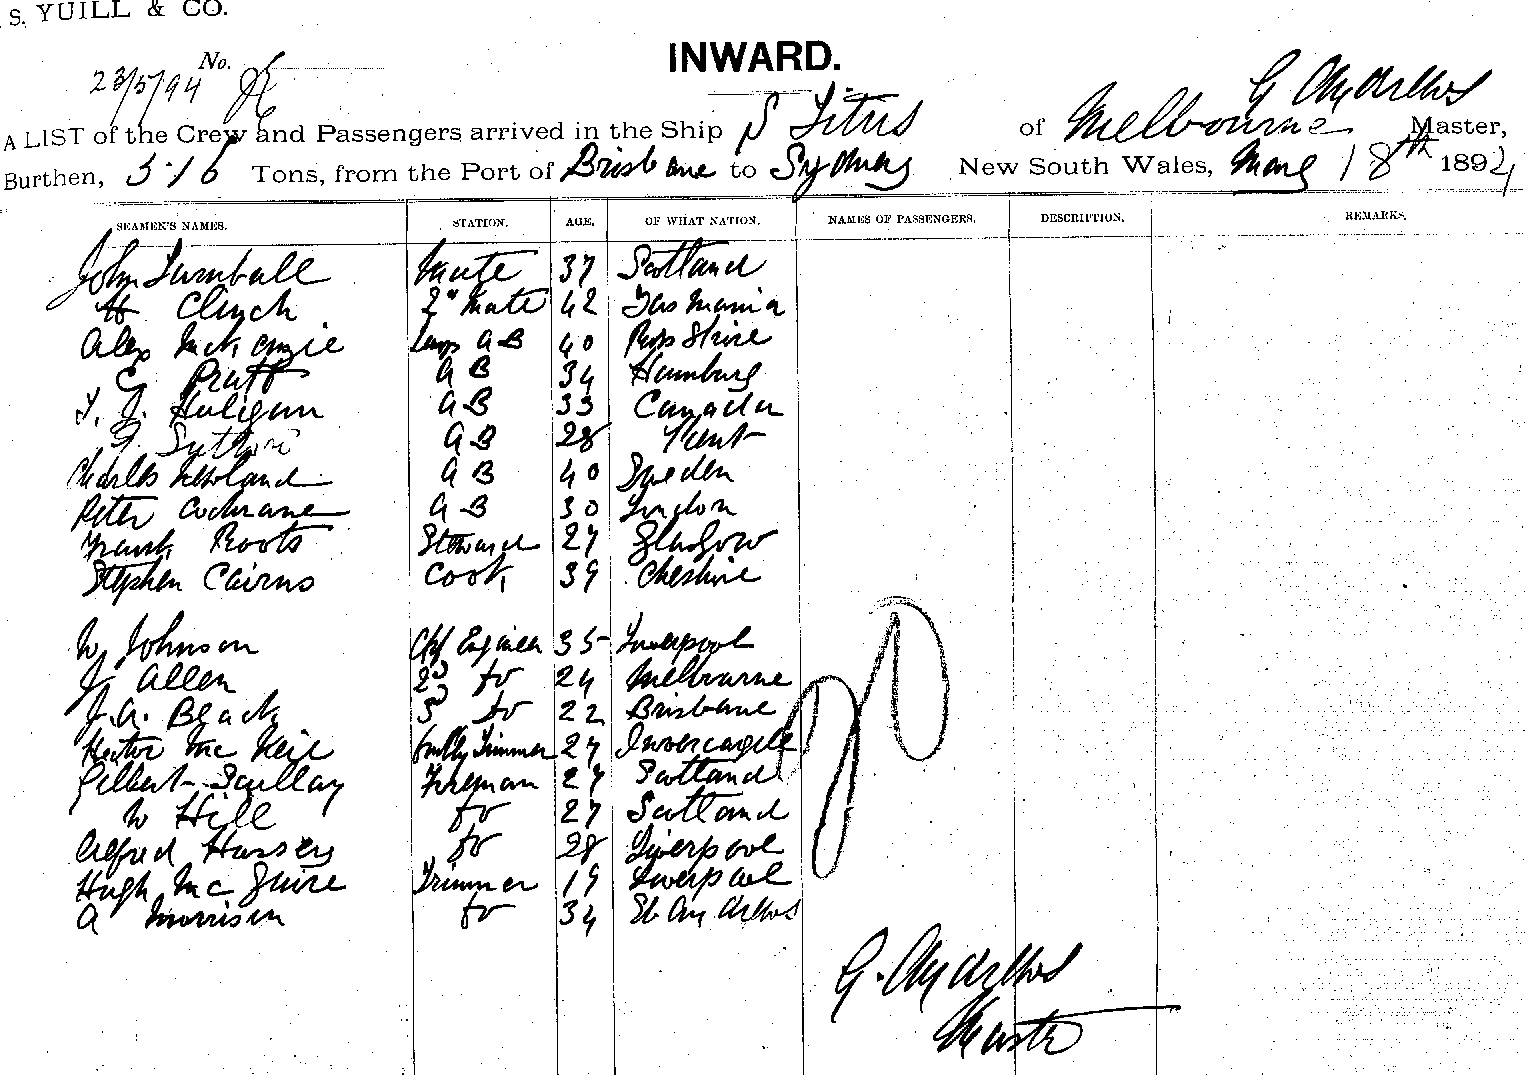 S. YUILL & CO.
No.
23/5/94
INWARD.
G Andrews
A LIST of the Crew and Passengers arrived in the Ship S Titus of Melbourne Master,
Burthen, 516 Tons, from the Port of Brisbane to Sydney New South Wales, May 18th 1894
SEAMEN'S NAMES. STATION. AGE. OF WHAT NATION. NAMES OF PASSENGERS. DESCRIPTION. REMARKS.
John Turnbull Mate 37 Scotland
H Clinch 2nd Mate 42 Tasmania
Alex McKenzie Lamps AB 40 Ross Shire
C Pratt AB 34 Hamburg
T. J. Haligan AB 33 Canada
F Sutton AB 28 Kent
Charles Newland AB 40 Sweden
Peter Cochrane AB 30 London
Frank Roots Steward 27 Glasgow
Stephen Cairns Cook 39 Cheshire
W Johnson Chf Engineer 35 Liverpool
J Allen 2nd do 24 Melbourne
J. A. Black 3rd do 22 Brisbane
Hector McNeil Trimmer 27
Gilbert Scullay Fireman 27 Scotland
W Hill do 27 Scotland
Alfred Hussey do 28 Liverpool
Hugh McGuire Trimmer 19 Liverpool
A Morrison do 34 St Andrews
G. Andrews
Master